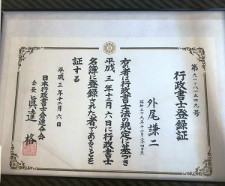 行政書士登録証
外尾謙二
右の者は行政書士法の規定に基づき
平成三年十二月六日に行政書士
名簿に登録された者であることを
証する
平成三年十二月六日
日本行政書士会連合会
会長